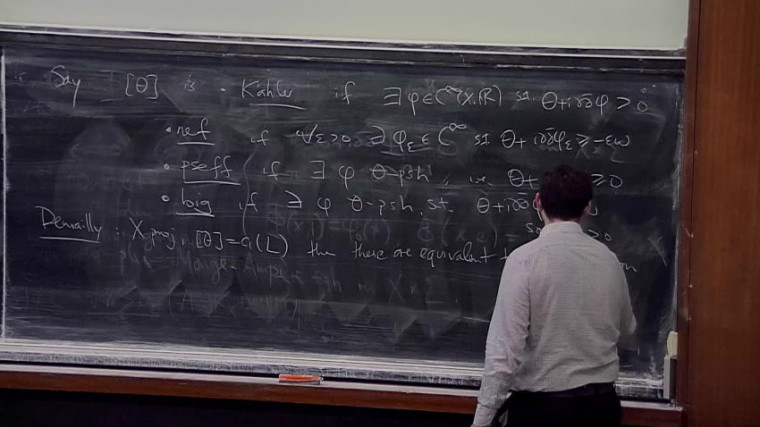 Say [θ] is • Kähler if ∃ φ ∈ C^∞(X,ℝ) st. θ+i∂∂̄φ > 0
• nef if ∀ε>0 ∃ φ_ε ∈ C^∞ st. θ+i∂∂̄φ_ε ≥ -εω
• pseff if ∃ φ θ-psh, i.e. θ+ ≥ 0
• big if ∃ φ θ-psh, st. θ+i∂∂̄φ
Demailly : X proj., [θ]=c₁(L) then these are equivalent >0